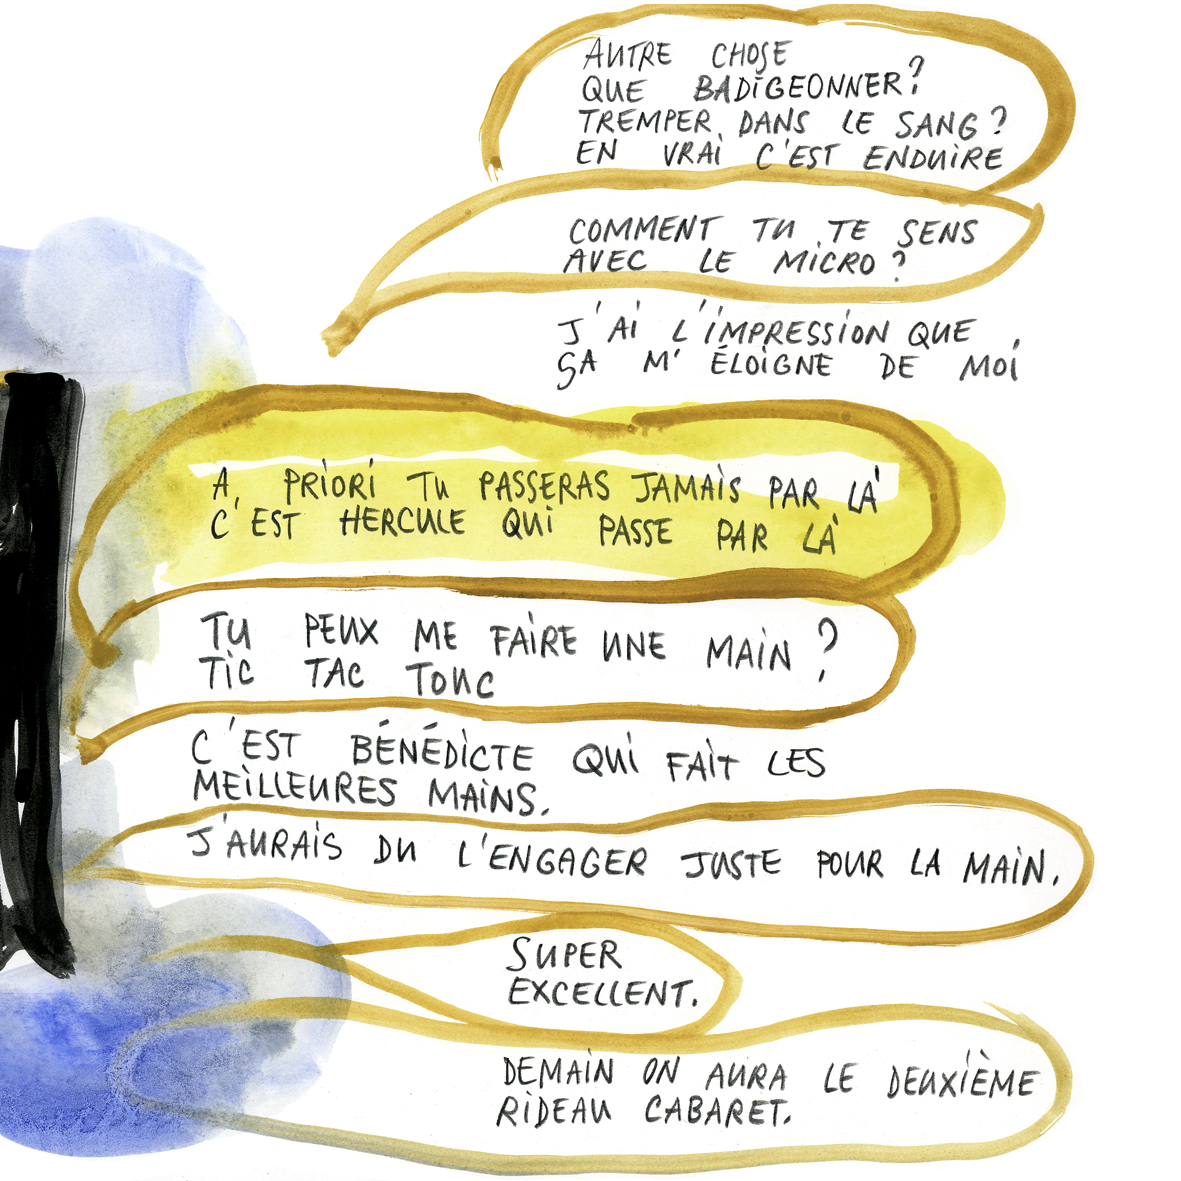 AUTRE CHOSE
QUE BADIGEONNER?
TREMPER DANS LE SANG?
EN VRAI C'EST ENDUIRE
COMMENT TU TE SENS
AVEC LE MICRO?
J'AI L'IMPRESSION QUE
ÇA M'ÉLOIGNE DE MOI
A PRIORI TU PASSERAS JAMAIS PAR LÀ
C'EST HERCULE QUI PASSE PAR LÀ
TU PEUX ME FAIRE UNE MAIN?
TIC TAC TOUC
C'EST BÉNÉDICTE QUI FAIT LES
MEILLEURES MAINS.
J'AURAIS DU L'ENGAGER JUSTE POUR LA MAIN.
SUPER
EXCELLENT.
DEMAIN ON AURA LE DEUXIÈME
RIDEAU CABARET.